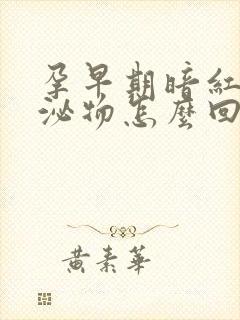 孕早期暗紅
泌物怎麼回
黃素華